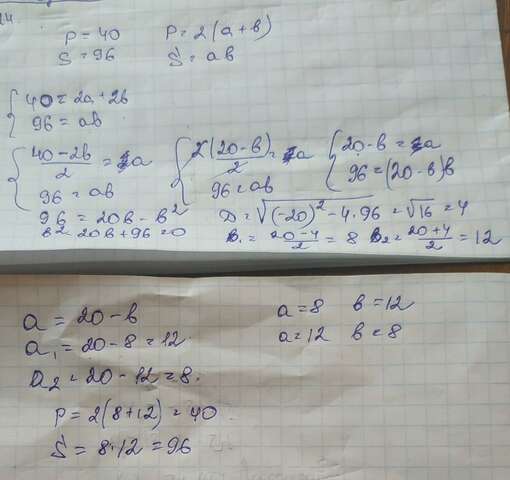 24
P = 40   P = 2(a+b)
S = 96   S = ab
{ 40 = 2a + 2b
96 = ab
{ (40-2b)/2 = a   { 2(20-b)/2 = a   { 20-b = a
96 = ab   96 = ab   96 = (20-b)b
96 = 20b - b²   D = √((-20)² - 4·96) = √16 = 4
b² 20b + 96 = 0   b₁ = (20-4)/2 = 8   b₂ = (20+4)/2 = 12
a = 20 - b   a = 8   b = 12
a₁ = 20 - 8 = 12   a = 12   b = 8
a₂ = 20 - 12 = 8.
P = 2(8+12) = 40
S = 8·12 = 96